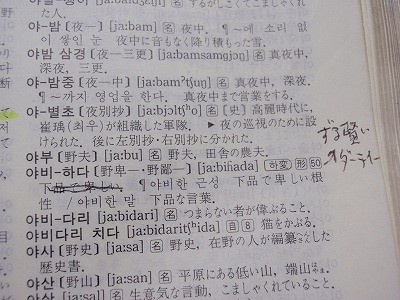 た人.
야-밤〔夜—〕[ja:bam] 名 夜中. ¶~에 소리 없
이 쌓인 눈 夜中に音もなく降り積もった雪.
야밤 삼경〔夜—三更〕[ja:bamsamgjəŋ] 名 真夜中,
深夜, 三更.
야-밤중〔夜—中〕[ja:bamˀtʃuŋ] 名 真夜中, 深夜.
¶~까지 영업을 한다. 真夜中まで営業をする.
야-별초〔夜別抄〕[ja:bjəltʃʰo] 名〔史〕高麗時代に,
崔瑀(최우)が組織した軍隊. ►夜の巡視のために設
けられた. 後に左別抄・右別抄に分かれた.
야부〔野夫〕[ja:bu] 名 野夫, 田舎の農夫.
야비-하다〔野卑—・野鄙—〕[ja:biɦada] 名 下変 形 50
下品で卑しい. ¶야비한 근성 下品で卑しい根
性 / 야비한 말 下品な言葉.
야비-다리 [ja:bidari] 名 つまらない者が偉ぶること.
야비다리 치다 [ja:bidaritʃʰida] 自 8 猫をかぶる.
야사〔野史〕[ja:sa] 名 野史, 在野の人が編纂さんした
歴史書.
야산〔野山〕[ja:san] 名 平原にある低い山, 端山はやま.
[ja:sal] 名 生意気な言動, こましゃくれていること.
ずる賢い
ダーティー